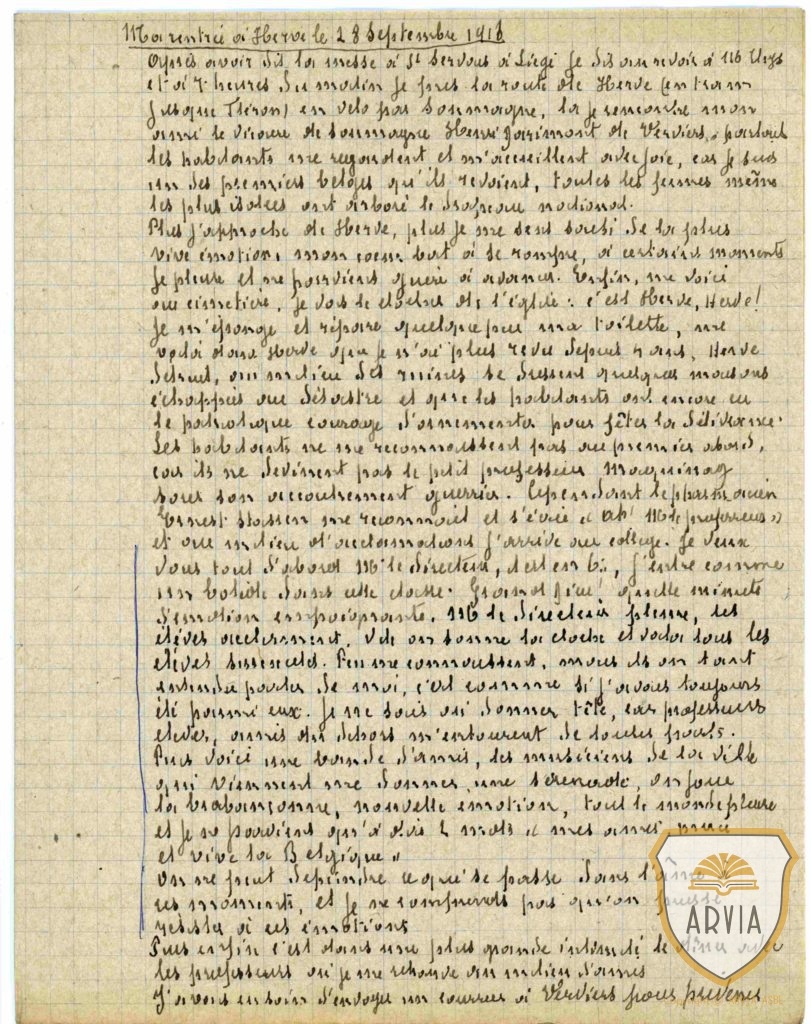 Ma rentrée à Herve le 28 Septembre 1918
Après avoir dit la messe à St Servais à Liège je dis au revoir à Mr
et à 7 heures du matin je pris la route de Herve (en tram
jusque Fléron) en vélo par Soumagne, là je rencontre mon
ami le vicaire de Soumagne Henri Garimont de Verviers, partout
les habitants me regardent et m'accueillent avec joie, car je suis
un des premiers belges qu'ils revoient, toutes les fermes même
les plus isolées ont arboré le drapeau national.
Plus j'approche de Herve, plus je me sens saisi de la plus
vive émotion, mon coeur bat à se rompre, à certains moments
je pleure et ne parviens guère à avancer. Enfin, me voici
au cimetière, je vois le clocher de l'église : c'est Herve, Herve!
Je m'éponge et répare quelque peu ma toilette, me
voilà dans Herve que je n'ai plus revu depuis 4 ans, Herve
détruit, au milieu des ruines se dressent quelques maisons
échappées au désastre et que les habitants ont encore eu
le patriotique courage d'ornementer pour fêter la délivrance.
Les habitants ne me reconnaissent pas au premier abord,
car ils ne devinent pas le petit professeur Maquinay
sous son accoutrement guerrier. Cependant le pharmacien
Ernest Stassen me reconnait et s'écrie « Ah! Mr le professeur »
et au milieu d'acclamations j'arrive au collège. Je veux
voir tout d'abord Mr le Directeur, il est en 6e, j'entre comme
un bolide dans cette classe. Grand Dieu! quelle minute
d'émotion empoignante. Mr le Directeur pleure, les
élèves acclament. Vite on sonne la cloche et voilà tous les
élèves dissipés. Peu me connaissent, mais ils ont tant
entendu parler de moi, c'est comme si j'avais toujours
été parmi eux. Je ne sais où donner tête, car professeurs
élèves, amis du dehors m'entourent de toutes parts.
Puis voici une bande d'amis, les musiciens de la ville
qui viennent me donner une sérénade, on joue
la brabançonne, nouvelle émotion, tout le monde pleure
et je ne parviens qu'à dire 2 mots « mes amis, merci
et vive la Belgique »
On ne peut dépeindre ce qui se passe dans l'âme
ces moments, et je ne comprends pas qu'on puisse
résister à ces émotions
Puis enfin c'est dans une plus grande intimité le dîner avec
les professeurs où je me retrouve au milieu d'amis
J'avais eu soin d'envoyer un courrier à Verviers pour prévenir
ARVIA